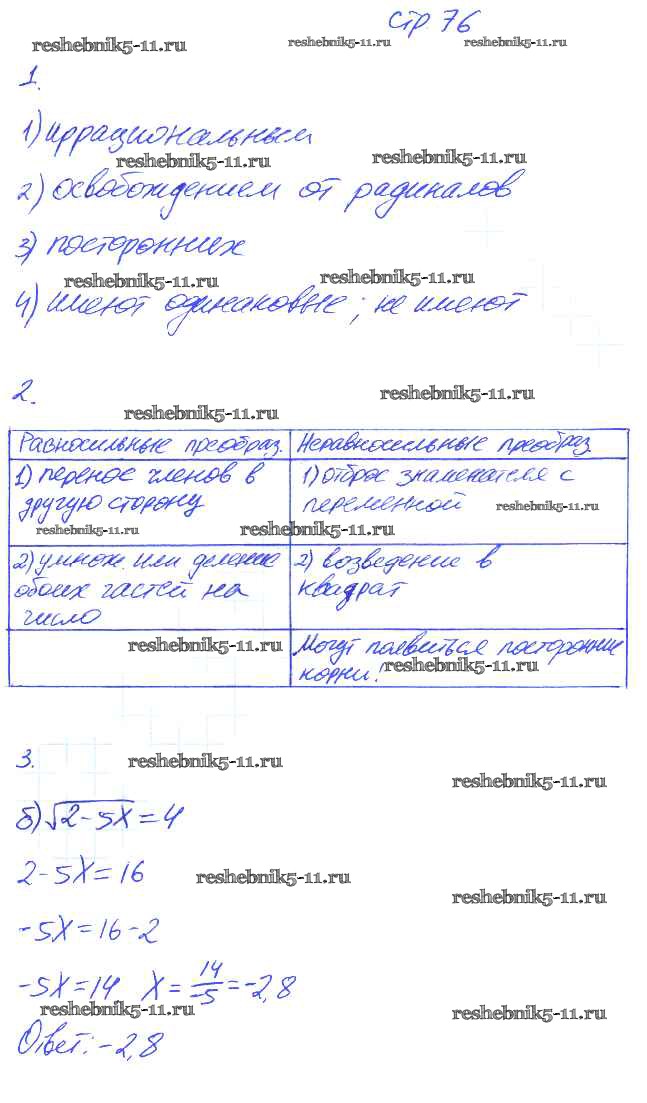 стр. 76
reshebnik5-11.ru reshebnik5-11.ru reshebnik5-11.ru
1.
1) иррациональным
reshebnik5-11.ru reshebnik5-11.ru
2) освобождением от радикалов
3) посторонних
reshebnik5-11.ru reshebnik5-11.ru
4) имеют одинаковые; не имеют
2.
reshebnik5-11.ru reshebnik5-11.ru
Равносильные преобраз. Неравносильные преобраз.
1) перенос членов в
другую сторону
reshebnik5-11.ru
1) отброс знаменателя с
переменной reshebnik5-11.ru
reshebnik5-11.ru
2) умнож. или деление
обоих частей на
число
2) возведение в
квадрат
reshebnik5-11.ru
Могут появиться посторонние
корни! reshebnik5-11.ru
3.
reshebnik5-11.ru reshebnik5-11.ru
б) √2-5X = 4
2-5X = 16
reshebnik5-11.ru reshebnik5-11.ru
-5X = 16-2
-5X = 14 X = 14/-5 = -2,8
reshebnik5-11.ru reshebnik5-11.ru
Ответ: -2,8